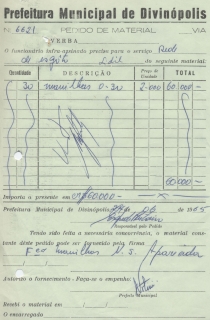 Prefeitura Municipal de Divinópolis
N. 6631 PEDIDO DE MATERIAL VIA
VERBA
O funcionário infra-assinado precisa para o serviço Rede
de esgôto do seguinte material:
Quantidade DESCRIÇÃO Preço da Unidade TOTAL
30 manilhas 0-30 2.000 60.000-
60.000-
Importa o presente em 60.000-
Prefeitura Municipal de Divinópolis, de de 19
Responsável pelo Pedido
Tendo sido feita a necessária concorrência, o material constante dêste pedido pode ser fornecido pela firma
manilhas N. S. Aparecida
Autorizo o fornecimento - Faça-se o empenho
Prefeito Municipal
Recebi o material em
O encarregado